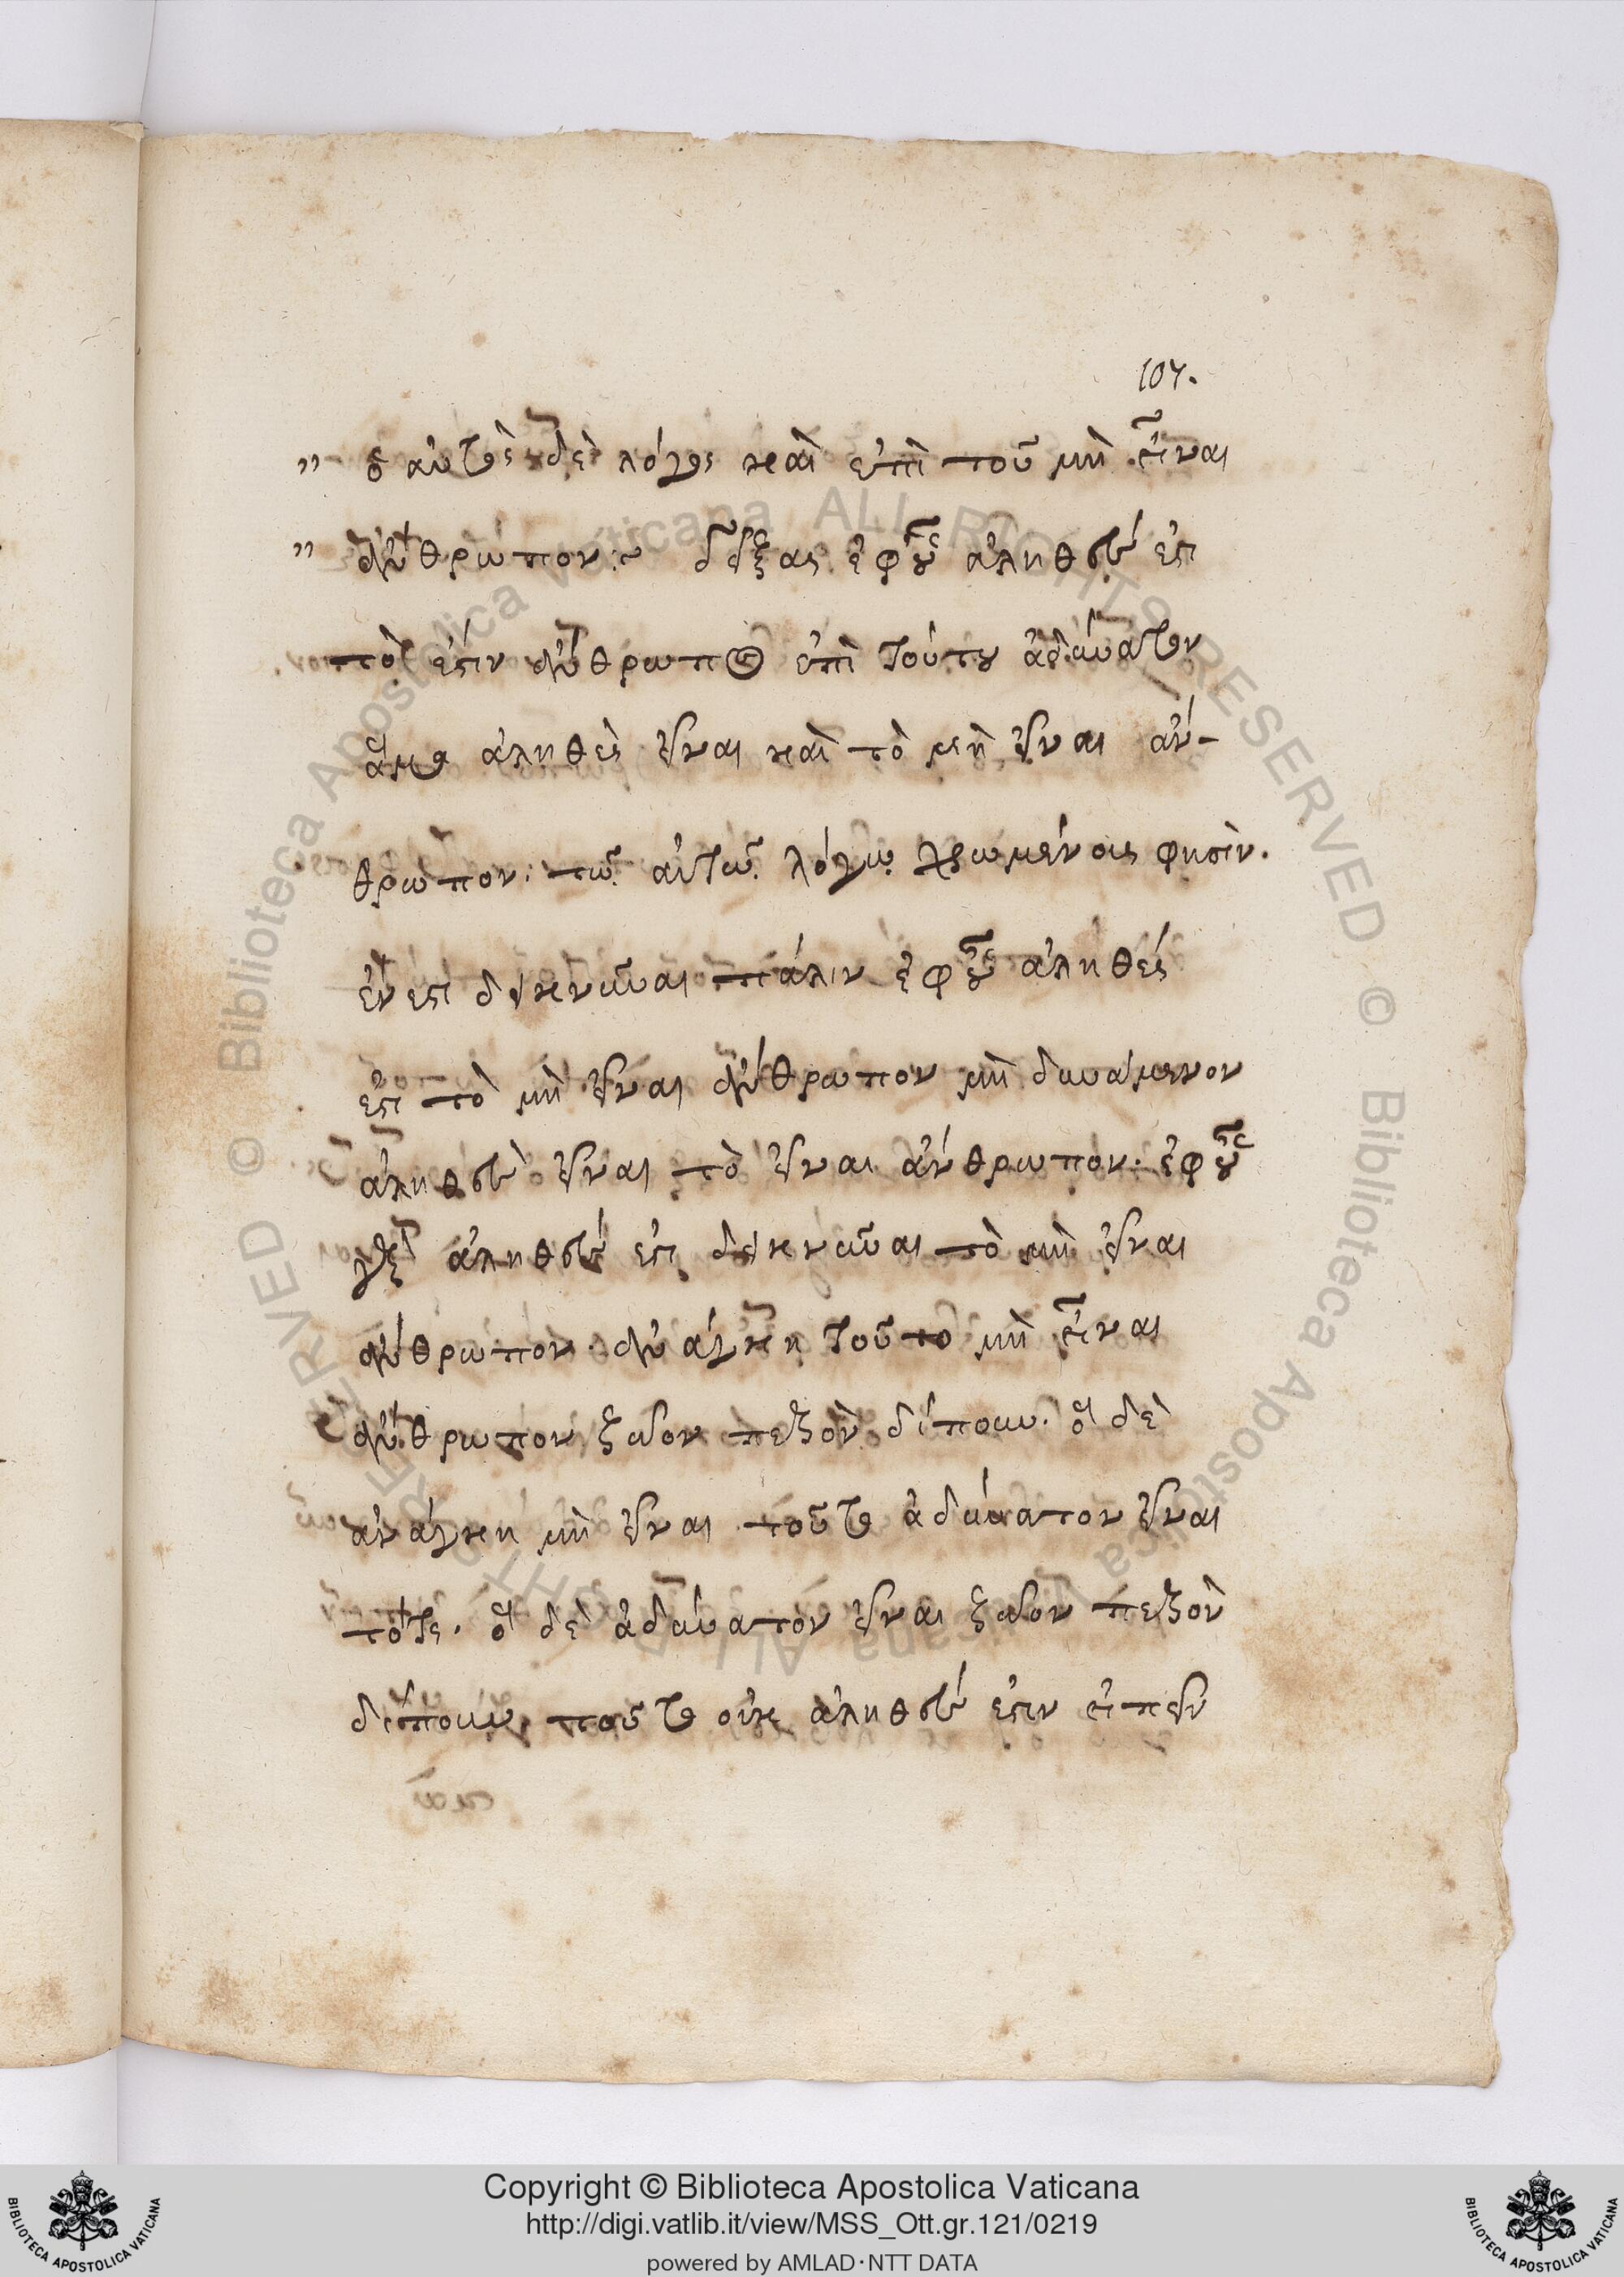 107.
" ὁ αὐτὸς δὲ λόγος καὶ ἐπὶ τοῦ μὴ εἶναι
" ἄνθρωπον:~ δείξας ἐφ' οὗ ἀληθές ἐστι
τὸ ἐστιν ἄνθρωπος ἐπὶ τούτου ἀδύνατον
ἅμα ἀληθὲς εἶναι καὶ τὸ μὴ εἶναι ἄν-
θρωπον· τῷ αὐτῷ λόγῳ χρωμένοις φησὶν.
ἔνεστι δεικνύναι πάλιν ἐφ' οὗ ἀληθές
ἐστι τὸ μὴ εἶναι ἄνθρωπον μὴ δυνάμενον
ἀληθὲς εἶναι τὸ εἶναι ἄνθρωπον. ἐφ' οὗ
ἀληθές ἐστι δεικνύναι τὸ μὴ εἶναι
ἄνθρωπον. ἀνάγκη τοῦτο μὴ εἶναι
ἄνθρωπον ζῷον πεζὸν δίπουν. ὃ δὲ
ἀνάγκη μὴ εἶναι τοῦτο ἀδύνατον εἶναι
ποτε. ὃ δὲ ἀδύνατον εἶναι ζῷον πεζὸν
δίπουν, τοῦτο οὐκ ἀληθές ἐστιν εἰπεῖν
Copyright © Biblioteca Apostolica Vaticana
http://digi.vatlib.it/view/MSS_Ott.gr.121/0219
powered by AMLAD·NTT DATA
BIBLIOTECA APOSTOLICA VATICANA
BIBLIOTECA APOSTOLICA VATICANA
© Biblioteca Apostolica Vaticana ALL RIGHTS RESERVED
© Biblioteca Apostolica Vaticana ALL RIGHTS RESERVED